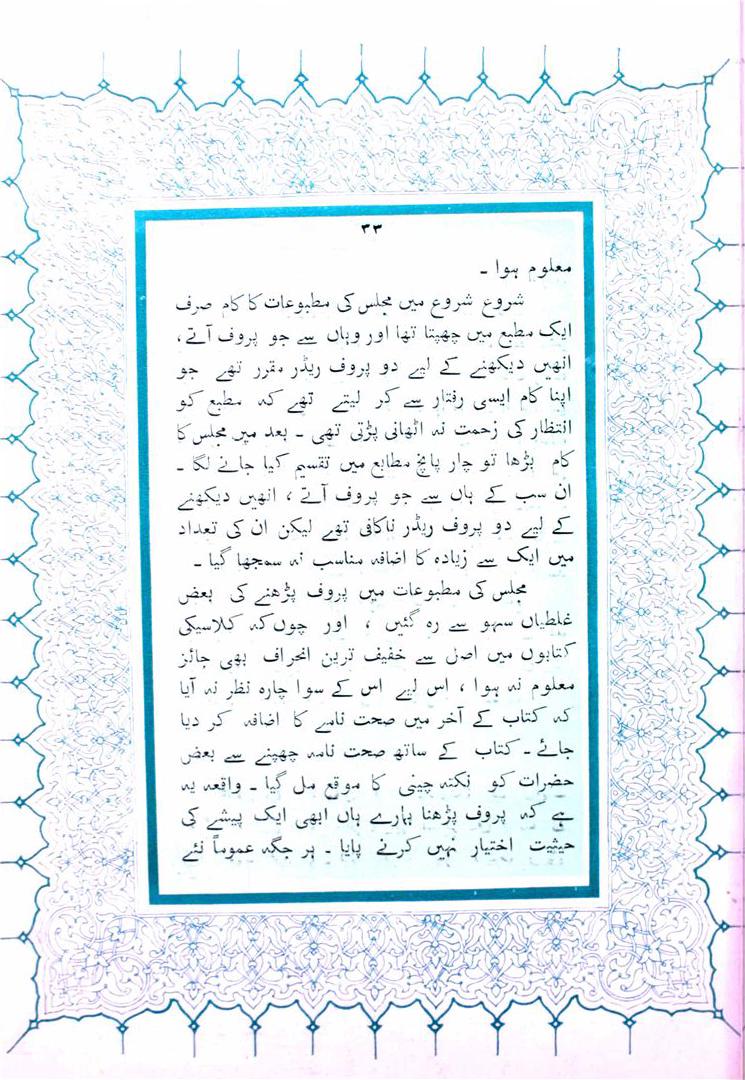 ۳۳
معلوم ہوا ۔
شروع شروع میں مجلس کی مطبوعات کا کام صرف
ایک مطبع میں چھپتا تھا اور وہاں سے جو پروف آتے ،
انھیں دیکھنے کے لیے دو پروف ریڈر مقرر تھے جو
اپنا کام ایسی رفتار سے کر لیتے تھے کہ مطبع کو
انتظار کی زحمت نہ اٹھانی پڑتی تھی ۔ بعد میں مجلس کا
کام بڑھا تو چار پانچ مطابع میں تقسیم کیا جانے لگا ۔
ان سب کے ہاں سے جو پروف آتے ، انھیں دیکھنے
کے لیے دو پروف ریڈر ناکافی تھے لیکن ان کی تعداد
میں ایک سے زیادہ کا اضافہ مناسب نہ سمجھا گیا ۔
مجلس کی مطبوعات میں پروف پڑھنے کی بعض
غلطیاں سہو سے رہ گئیں ، اور چوں کہ کلاسیکی
کتابوں میں اصل سے خفیف ترین انحراف بھی جائز
معلوم نہ ہوا ، اس لیے اس کے سوا چارہ نظر نہ آیا
کہ کتاب کے آخر میں صحت نامے کا اضافہ کر دیا
جائے ۔ کتاب کے ساتھ صحت نامہ چھپنے سے بعض
حضرات کو نکتہ چینی کا موقع مل گیا ۔ واقعہ یہ
ہے کہ پروف پڑھنا ہمارے ہاں ابھی ایک پیشے کی
حیثیت اختیار نہیں کرنے پایا ۔ ہر جگہ عموماً نئے